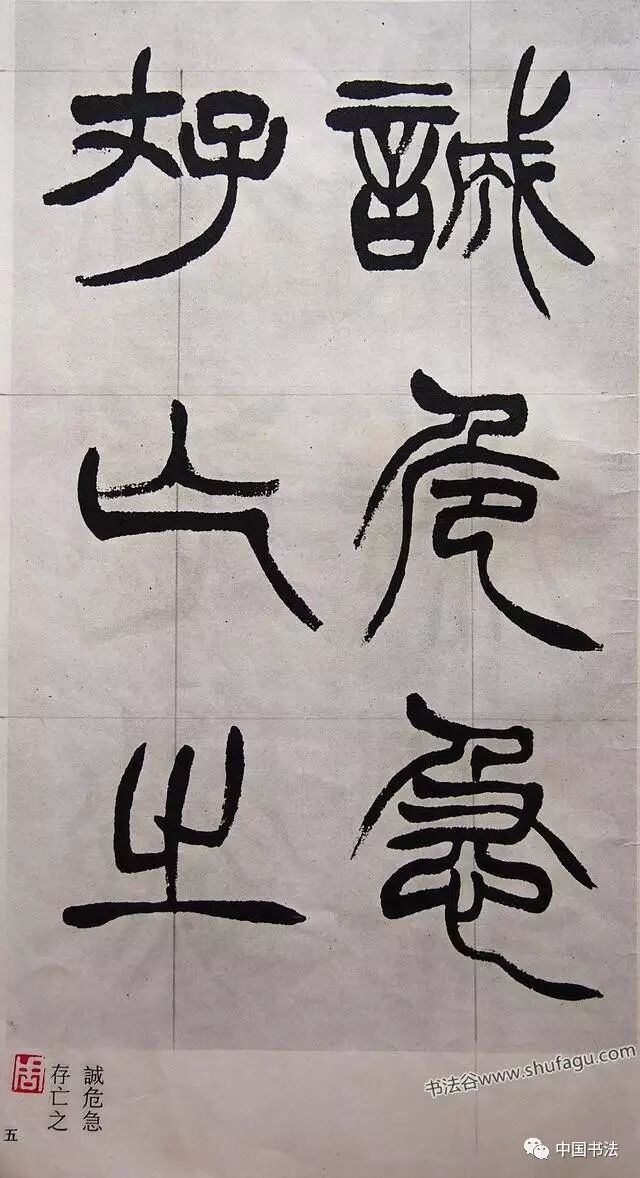 誠危急
存亡之
誠危急
存亡之
五
書法谷www.shufagu.com
中国书法